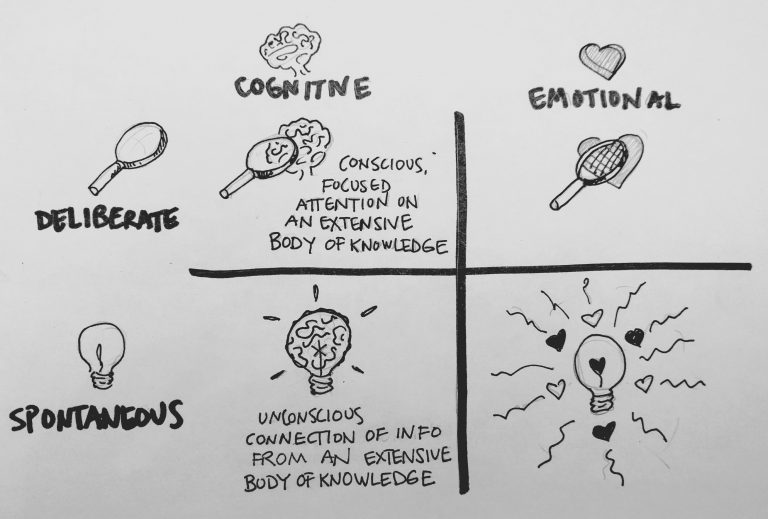 COGNITIVE
EMOTIONAL
DELIBERATE
CONSCIOUS,
FOCUSED
ATTENTION ON
AN EXTENSIVE
BODY OF KNOWLEDGE
SPONTANEOUS
UNCONSCIOUS
CONNECTION OF INFO
FROM AN EXTENSIVE
BODY OF KNOWLEDGE